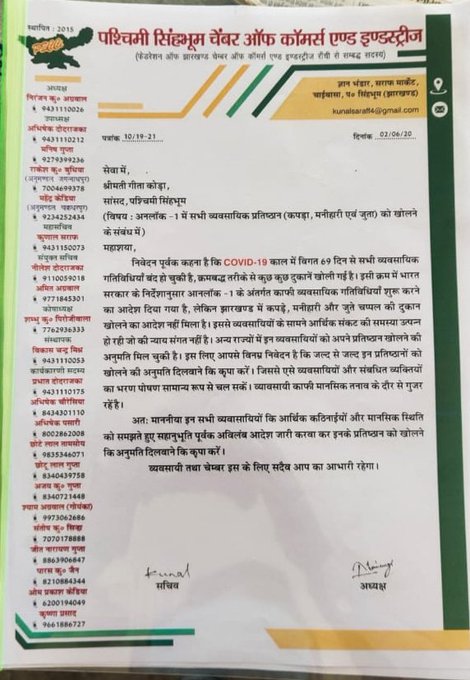 स्थापित : 2015
पश्चिमी सिंहभूम चेंबर ऑफ कॉमर्स एण्ड इण्डस्ट्रीज
(फेडरेशन ऑफ झारखण्ड चेम्बर ऑफ कॉमर्स एण्ड इण्डस्ट्रीज राँची से सम्बद्ध सदस्य)
ज्ञान भंडार, सराफ मार्केट,
चाईबासा, प० सिंहभूम (झारखण्ड)
kunalsaraff4@gmail.com
अध्यक्ष
निरंजन कु० अग्रवाल
9431110026
उपाध्यक्ष
अभिषेक दोदराजका
9431110212
मनिष गुप्ता
9279399236
राकेश कु० बुधिया
(अनुमण्डल जगन्नाथपुर)
7004699378
महेंद्र केडिया
(अनुमण्डल चक्रधरपुर)
9234252434
महासचिव
कुणाल सराफ
9431150073
संयुक्त सचिव
नीलेश दोदराजका
9110059018
अमित अग्रवाल
9771845301
कोषाध्यक्ष
शम्भु कु० पिरोजीवाला
7762936333
संस्थापक
विकास चन्द्र मिश्र
9431110053
कार्यकारणी सदस्य
प्रभात दोदराजका
9431110175
अभिषेक चौरेसिया
8434301110
अभिषेक पसारी
8002862008
छोटे लाल तामसोय
9835346071
छोटू लाल गुप्ता
8340439758
अजय कु० गुप्ता
8340721448
श्याम अग्रवाल (गोयंका)
9973062686
संतोष कु० सिन्हा
7070178888
जीत नारायण गुप्ता
8863906847
पारस कु० जैन
8210884344
ओम प्रकाश केडिया
6200194049
कृष्णा प्रसाद
9661886727
पत्रांक 10/19-21 दिनांक 02/06/20
सेवा में,
श्रीमती गीता कोड़ा,
सांसद, पश्चिमी सिंहभूम
(विषय : अनलॉक -1 में सभी व्यवसायिक प्रतिष्ठान (कपड़ा, मनीहारी एवं जुता) को खोलने
के संबंध में)
महाशया,
निवेदन पूर्वक कहना है कि COVID-19 काल में विगत 69 दिन से सभी व्यवसायिक
गतिविधियाँ बंद हो चुकी है, क्रमबद्ध तरीके से कुछ कुछ दुकानें खोली गई है। इसी क्रम में भारत
सरकार के निर्देशानुसार आनलॉक -1 के अंतर्गत काफी व्यवसायिक गतिविधियाँ शुरू करने
का आदेश दिया गया है, लेकिन झारखण्ड में कपड़े, मनीहारी और जुते चप्पल की दुकान
खोलने का आदेश नहीं मिला है। इससे व्यवसायियों के सामने आर्थिक संकट की समस्या उत्पन
हो रही जो की न्याय संगत नहीं है। अन्य राज्यों में इन व्यवसायियों को अपने प्रतिष्ठान खोलने की
अनुमति मिल चुकी है। इस लिए आपसे विनम्र निवेदन है कि जल्द से जल्द इन प्रतिष्ठानों को
खोलने की अनुमति दिलवाने कि कृपा करें। जिससे एसे व्यवसायियों और संबंधित व्यक्तियों
का भरण पोषण सामान्य रूप से चल सकें। व्यावसायी काफी मानसिक तनाव के दौर से गुजर
रहें है।
अतः माननीया इन सभी व्यवसायियों कि आर्थिक कठिनाईयों और मानसिक स्थिति
को समझते हुए सहानुभूति पूर्वक अविलंब आदेश जारी करवा कर इनके प्रतिष्ठान को खोलने
कि अनुमति दिलवाने कि कृपा करें।
व्यवसायी तथा चेम्बर इस के लिए सदैव आप का आभारी रहेगा।
Kunal
सचिव
अध्यक्ष